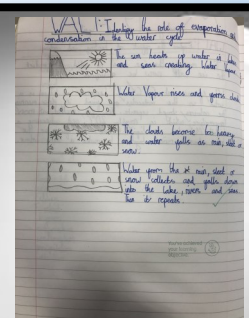 WALT: Identify the role of evaporation and
condensation in the water cycle
The sun heats up water in lakes
and seas creating Water Vapour
Water Vapour rises and forms clouds
The clouds become too heavy
and water falls as rain, sleet or
snow.
Water from the rain, sleet or
snow collects and falls down
into the lake, rivers and seas
Then it repeats
You've achieved
your learning
objective